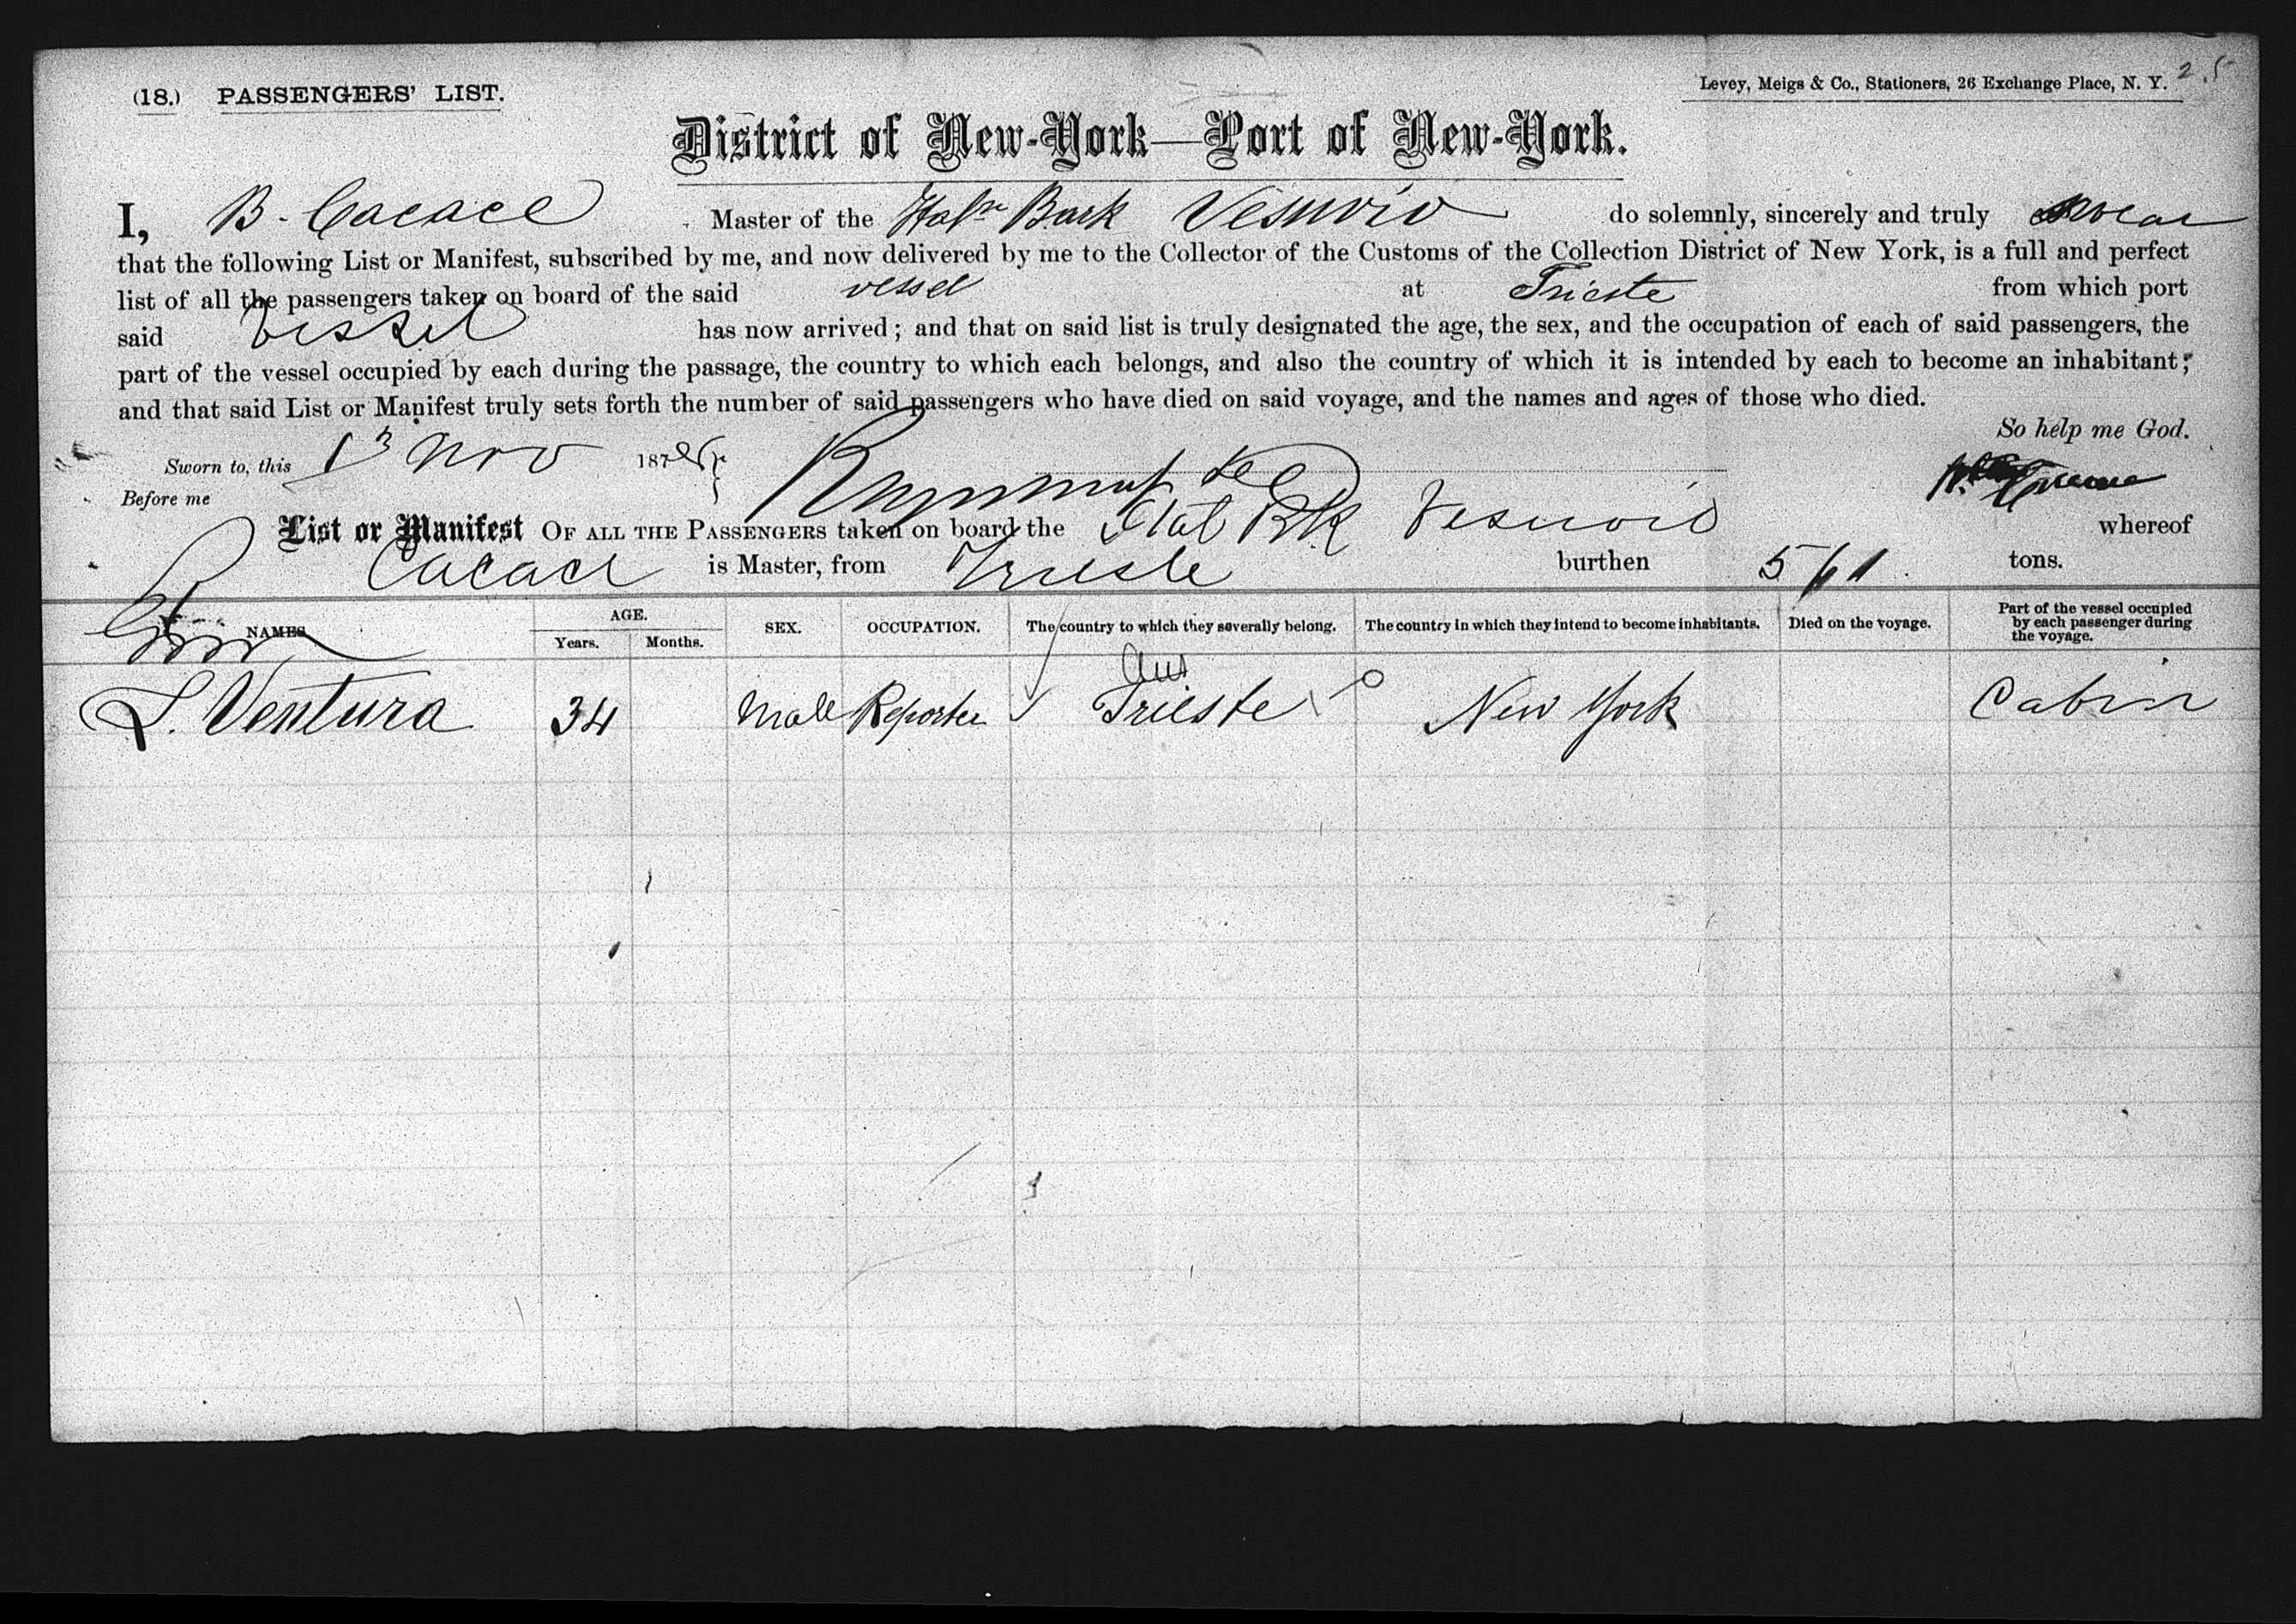 (18.) PASSENGERS' LIST.
Levey, Meigs & Co., Stationers, 26 Exchange Place, N. Y.
District of New-York—Port of New-York.
I, B. Cacace Master of the Italn Bark Vesuvio do solemnly, sincerely and truly swear
that the following List or Manifest, subscribed by me, and now delivered by me to the Collector of the Customs of the Collection District of New York, is a full and perfect
list of all the passengers taken on board of the said vessel at Trieste from which port
said vessel has now arrived; and that on said list is truly designated the age, the sex, and the occupation of each of said passengers, the
part of the vessel occupied by each during the passage, the country to which each belongs, and also the country of which it is intended by each to become an inhabitant;
and that said List or Manifest truly sets forth the number of said passengers who have died on said voyage, and the names and ages of those who died.
So help me God.
Sworn to, this 13 Nov 187
Before me
List or Manifest OF ALL THE PASSENGERS taken on board the Ital Bk Vesuvio whereof
Cacace is Master, from Trieste burthen 561 tons.
NAMES AGE. Years. Months. SEX. OCCUPATION. The country to which they severally belong. The country in which they intend to become inhabitants. Died on the voyage. Part of the vessel occupied by each passenger during the voyage.
Aus
L. Ventura 34 Male Reporter Trieste New York Cabin